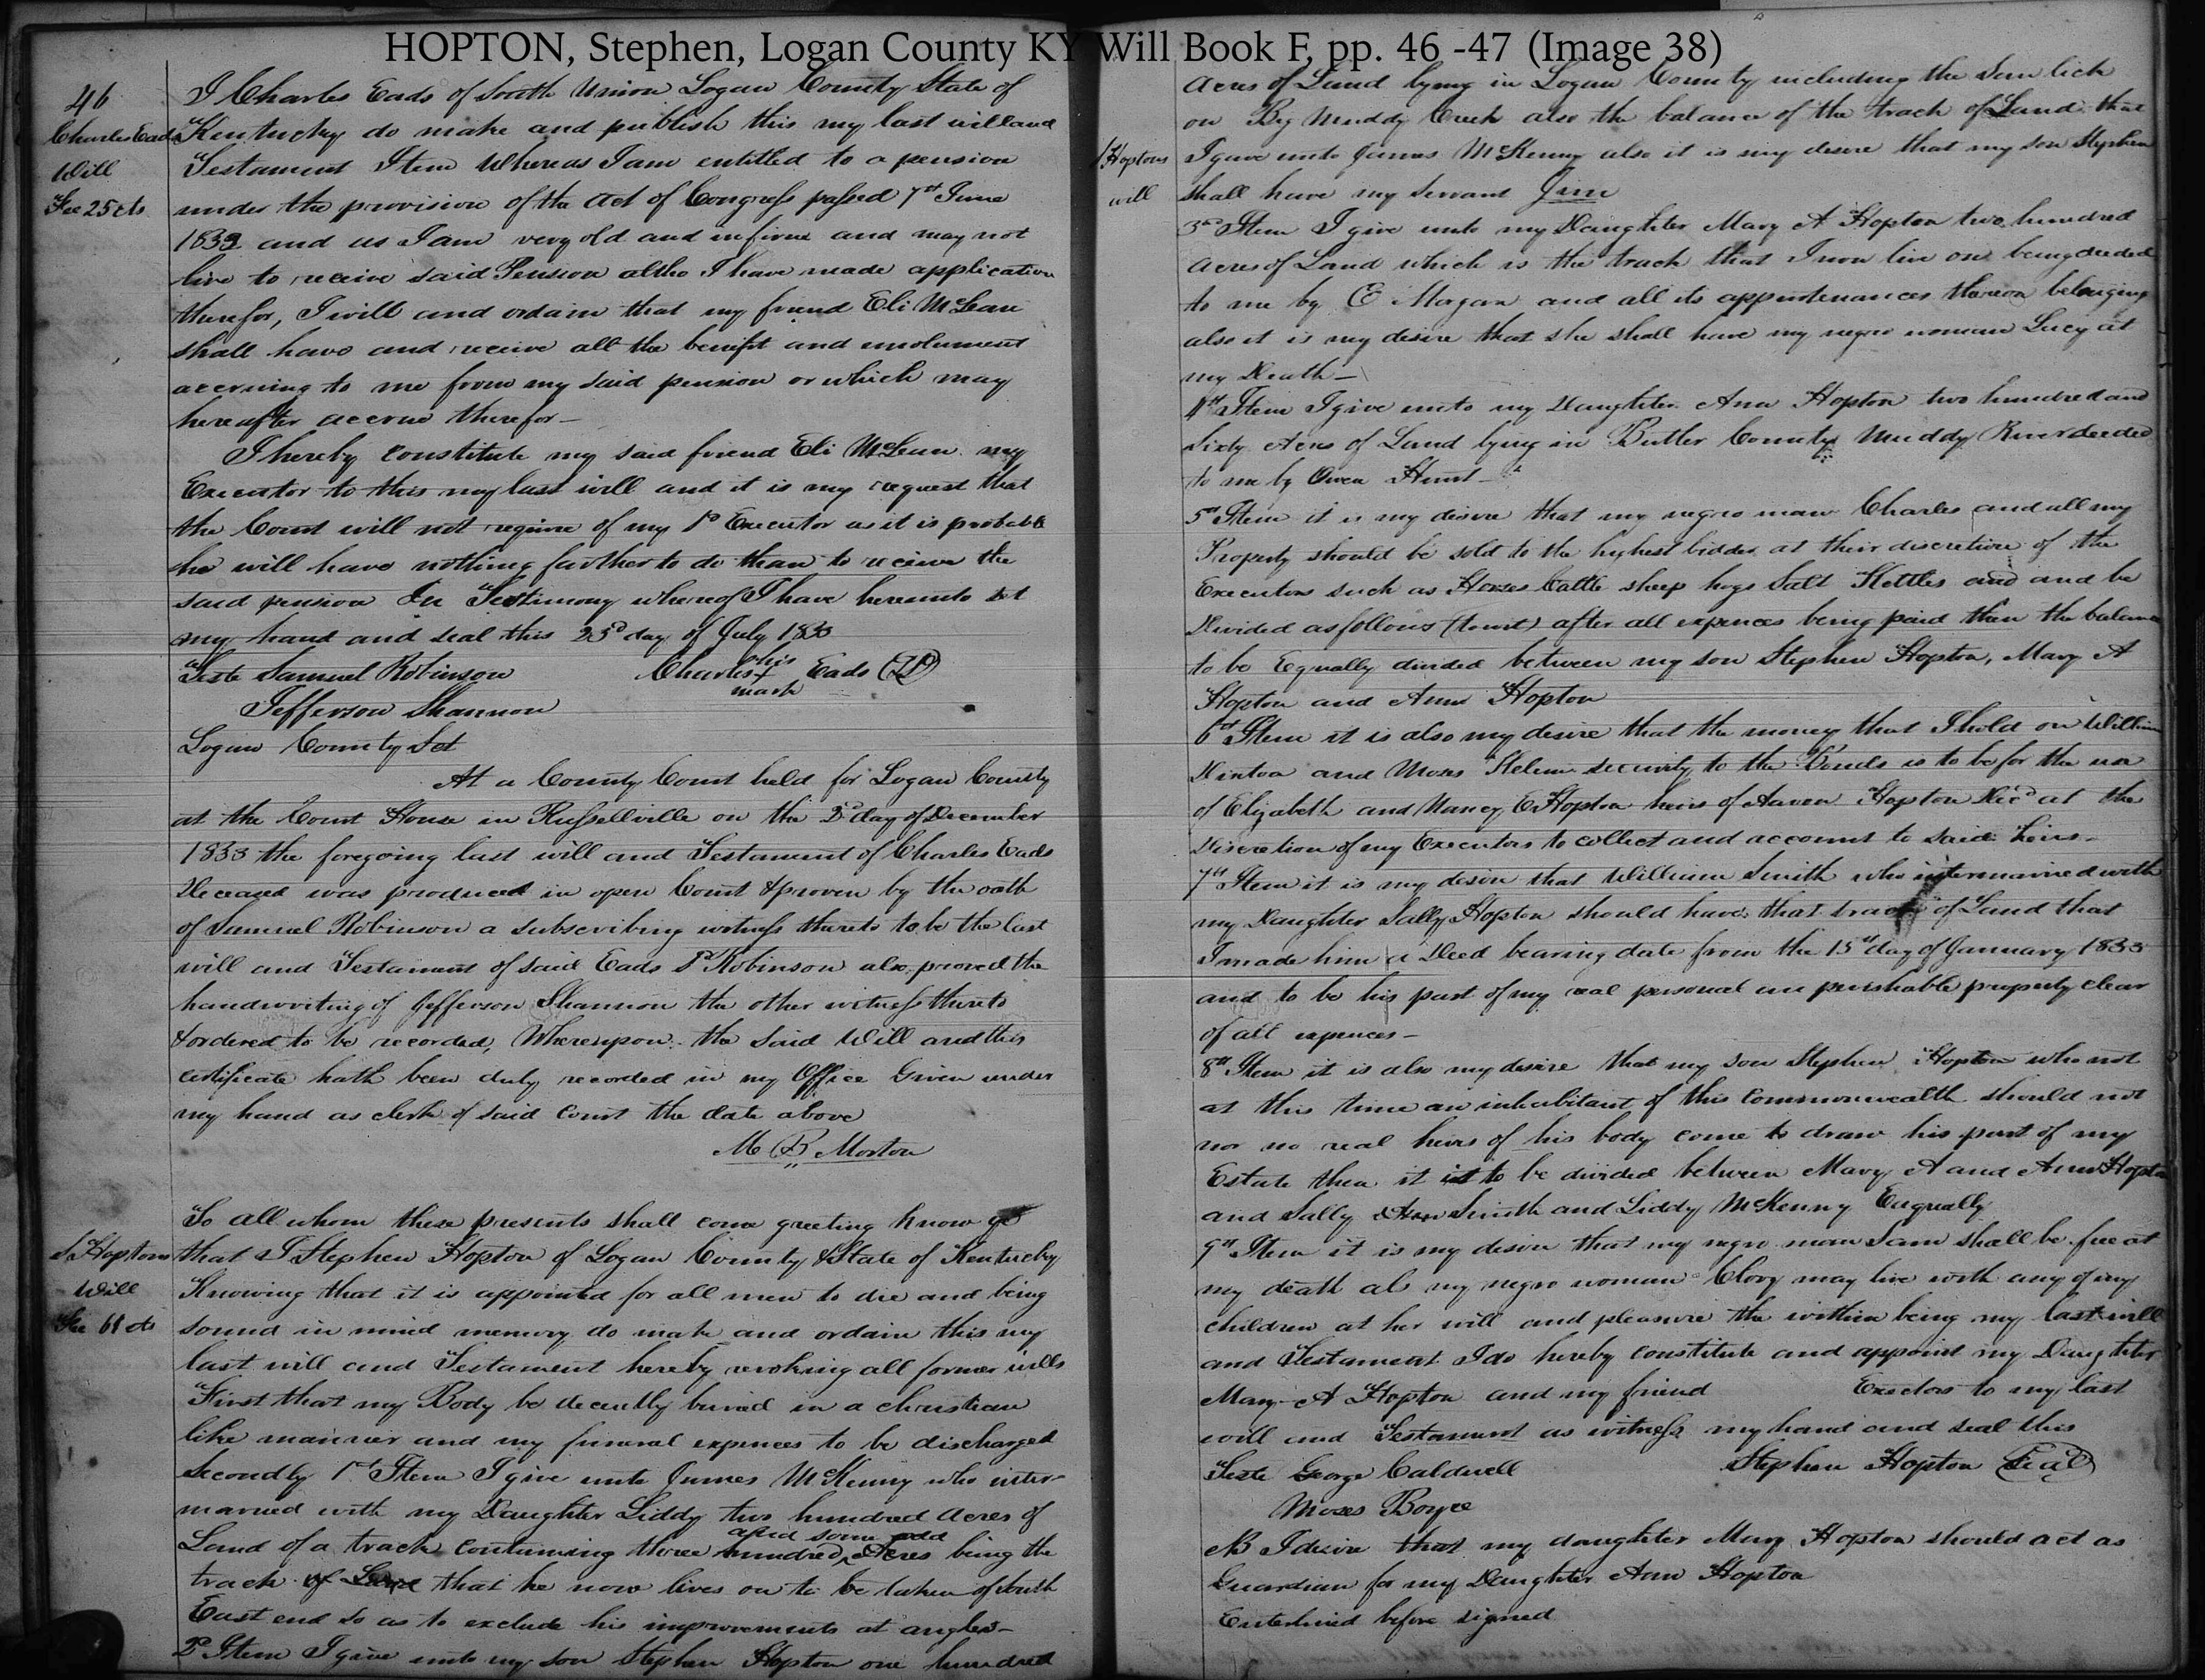 HOPTON, Stephen, Logan County KY Will Book F, pp. 46 -47 (Image 38)
46
Charles Eads
Will
Fee 25 cts
I Charles Eads of South Union Logan County State of
Kentucky do make and publish this my last will and
Testament Item Whereas I am entitled to a pension
under the provision of the act of Congress passed 7th June
1832 and as I am very old and infirm and may not
live to receive said Pension altho I have made application
therefor, I will and ordain that my friend Eli McLean
shall have and receive all the benifit and emolument
accruing to me from my said pension or which may
hereafter accrue therefor —
I hereby constitute my said friend Eli McLean my
Executor to this my last will and it is my request that
the Court will not require of my sd Executor as it is probable
he will have nothing farther to do than to receive the
said pension In Testimony whereof I have hereunto set
my hand and seal this 23d day of July 1833
Teste Samuel Robinson Charles his + mark Eads
Jefferson Shannon
Logan County Sct
At a County Court held for Logan County
at the Court House in Russellville on the 2d day of December
1833 the foregoing last will and Testament of Charles Eads
Deceased was produced in open Court & proven by the oath
of Samuel Robinson a subscribing witness thereto to be the last
will and Testament of said Eads sd Robinson also proved the
handwriting of Jefferson Shannon the other witness thereto
& ordered to be recorded, Whereupon the said Will and this
certificate hath been duly recorded in my Office Given under
my hand as clerk of said court the date above
M B Morton
S Hoptons
Will
Fee
To all whom these presents shall come greeting know ye
that I Stephen Hopton of Logan County & State of Kentucky
Knowing that it is appointed for all men to die and being
sound in mind memory do make and ordain this my
last will and Testament hereby revoking all former wills
First that my Body be decently buried in a christian
like manner and my funeral expences to be discharged
Secondly 1st Item I give unto James McKenny who inter-
married with my Daughter Liddy two hundred acres of
Land of a track containing three hundred and some odd Acres being the
track of Land that he now lives on to be taken of South
East end so as to exclude his improvements at angles —
2d Item I give unto my son Stephen Hopton one hundred
Hoptons
will
Acres of Land lying in Logan County including the Sim lick
on Big Muddy Creek also the balance of the track of Land that
I gave unto James McKenny also it is my desire that my son Stephen
shall have my servant Jim
3rd Item I give unto my Daughter Mary A Hopton two hundred
Acres of Land which is the track that I now live on being deeded
to me by E Morgan and all its appurtenances thereon belonging
also it is my desire that she shall have my negro woman Lucy at
my Death —
4th Item I give unto my Daughter Ann Hopton two hundred and
Sixty Acres of Land lying in Butler County Muddy River deeded
to me by Owen Hunt —
5th Item it is my desire that my negro man Charles and all my
Property should be sold to the highest bidder at their discretion of the
Executors such as Horses Cattle sheep hogs Salt Kettles and and be
Divided as follows (towit) after all expences being paid then the balance
to be Equally divided between my son Stephen Hopton, Mary A
Hopton and Ann Hopton
6th Item it is also my desire that the money that I hold on William
Hinton and Moses security to the Bonds is to be for the use
of Elizabeth and Nancy E Hopton heirs of Aaron Hopton Decd at the
Discretion of my Executors to collect and account to said heirs —
7th Item it is my desire that William Smith who intermarried with
my Daughter Sally Hopton should have that track of Land that
I made him a Deed bearing date from the 15th day of January 1833
and to be his part of my real personal and perishable property clear
of all expences —
8th Item it is also my desire that my son Stephen Hopton who not
at this time an inhabitant of this Commonwealth should not
nor no real heirs of his body come to draw his part of my
Estate then it is to be divided between Mary A and Ann Hopton
and Sally Smith and Liddy McKenny Euqually
9th Item it is my desire that my negro man Sam shall be free at
my death als my negro woman Clovy may live with any of my
children at her will and pleasure the within being my last will
and Testament I do hereby constitute and appoint my Daughter
Mary A Hopton and my friend Exectors to my last
will and Testament as witness my hand and seal this
Teste George Caldwell Stephen Hopton (Seal)
Moses Boyce
NB I desire that my daughter Mary Hopton should act as
Guardian for my Daughter Ann Hopton
Enterlined before signed